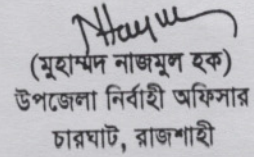 (মুহাম্মদ নাজমুল হক)
উপজেলা নির্বাহী অফিসার
চারঘাট, রাজশাহী